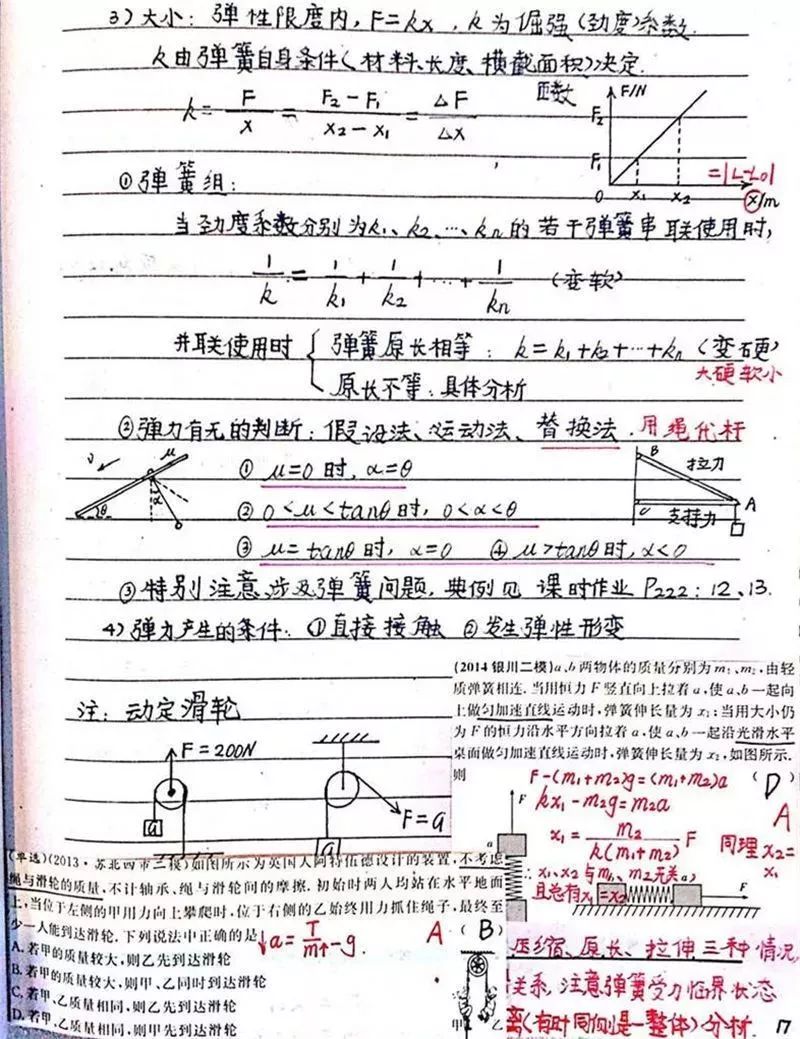 3)大小:弹性限度内,F=kx,k为倔强(劲度)系数.
k由弹簧自身条件(材料、长度、横截面积)决定.
k= F/x = (F₂-F₁)/(x₂-x₁) = ΔF/Δx
正数
F/N
F₂
F₁
0 x₁ x₂ x/m
=|L-L₀|
①弹簧组:
当劲度系数分别为k₁、k₂、…、kn的若干弹簧串联使用时,
1/k = 1/k₁ + 1/k₂ +…+ 1/kn (变软)
并联使用时 { 弹簧原长相等:k=k₁+k₂+…+kn (变硬)
大硬软小
原长不等:具体分析
②弹力有无的判断:假设法、运动法、替换法.用绳代杆
υ μ α θ
① μ=0时,α=θ
② 0<μ<tanθ时,0<α<θ
③ μ=tanθ时,α=0 ④μ>tanθ时,α<0
B 拉力
C 支持力 A
③特别注意涉及弹簧问题,典例见 课时作业 P222:12、13.
4)弹力产生的条件:①直接接触 ②发生弹性形变
注:动定滑轮
F=200N
a
a
F=a
(2014银川二模)a、b两物体的质量分别为m₁、m₂,由轻
质弹簧相连.当用恒力F竖直向上拉着a,使a、b一起向
上做匀加速直线运动时,弹簧伸长量为x₁;当用大小仍
为F的恒力沿水平方向拉着a,使a、b一起沿光滑水平
桌面做匀加速直线运动时,弹簧伸长量为x₂,如图所示.
则 (D)
F-(m₁+m₂)g=(m₁+m₂)a
kx₁-m₂g=m₂a
A
x₁= m₂/k(m₁+m₂) F 同理x₂=x₁
∴x₁、x₂与m₁、m₂无关,
且总有x₁=x₂
F
a
F
(单选)(2013·苏北四市三模)如图所示为英国人阿特伍德设计的装置,不考虑
绳与滑轮的质量,不计轴承、绳与滑轮间的摩擦.初始时两人均站在水平地面
上,当位于左侧的甲用力向上攀爬时,位于右侧的乙始终用力抓住绳子,最终至
少一人能到达滑轮.下列说法中正确的是 (B)
↓a= T/m↑ -g.
A
A.若甲的质量较大,则乙先到达滑轮
B.若甲的质量较大,则甲、乙同时到达滑轮
C.若甲、乙质量相同,则乙先到达滑轮
D.若甲、乙质量相同,则甲先到达滑轮
甲 乙
压缩、原长、拉伸三种情况
关系,注意弹簧受力临界状态
离(有时同侧是一整体)分析.
17